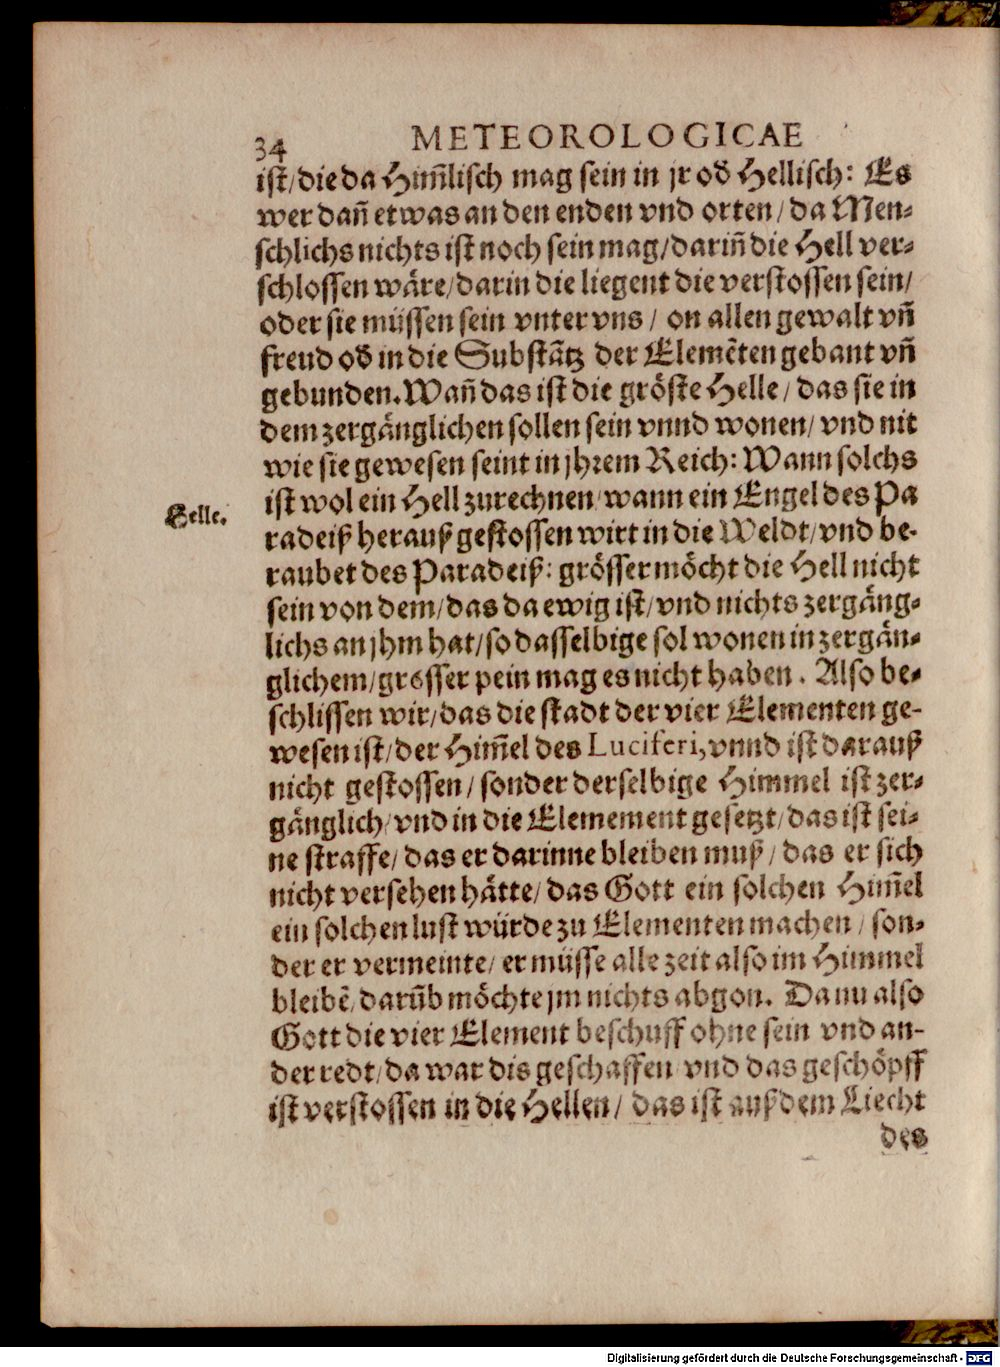 34 METEOROLOGICAE
ist/die da Him̃lisch mag sein in jr od Hellisch: Es
wer dañ etwas an den enden vnd orten/da Men-
schlichs nichts ist noch sein mag/dariñ die Hell ver-
schlossen wäre/darin die liegent die verstossen sein/
oder sie müssen sein vnter vns/ on allen gewalt vñ
freud od in die Substãtz der Elemẽten gebant vñ
gebunden. Wañ das ist die gröste Helle/ das sie in
dem zergänglichen sollen sein vnnd wonen/ vnd nit
wie sie gewesen seint in jhrem Reich: Wann solchs
ist wol ein Hell zurechnen/wann ein Engel des Pa
Helle.
radeiß herauß gestossen wirt in die Weldt/vnd be-
raubet des Paradeiß: grösser möcht die Hell nicht
sein von dem/das da ewig ist/vnd nichts zergäng-
lichs an jhm hat/so dasselbige sol wonen in zergän-
glichem/grosser pein mag es nicht haben. Also be-
schlissen wir/das die stadt der vier Elementen ge-
wesen ist/der Him̃el des Luciferi, vnnd ist darauß
nicht gestossen/sonder derselbige Himmel ist zer-
gänglich/vnd in die Elemement gesetzt/das ist sei-
ne straffe/das er darinne bleiben muß/das er sich
nicht versehen hätte/das Gott ein solchen Him̃el
ein solchen lust würde zu Elementen machen/son-
der er vermeinte/er müsse alle zeit also im Himmel
bleibẽ/darüb möchte jm nichts abgon. Da nu also
Gott die vier Element beschuff ohne sein vnd an-
der redt/da war dis geschaffen vnd das geschöpff
ist verstossen in die Hellen/ das ist auß dem Liecht
des
Digitalisierung gefördert durch die Deutsche Forschungsgemeinschaft - DFG